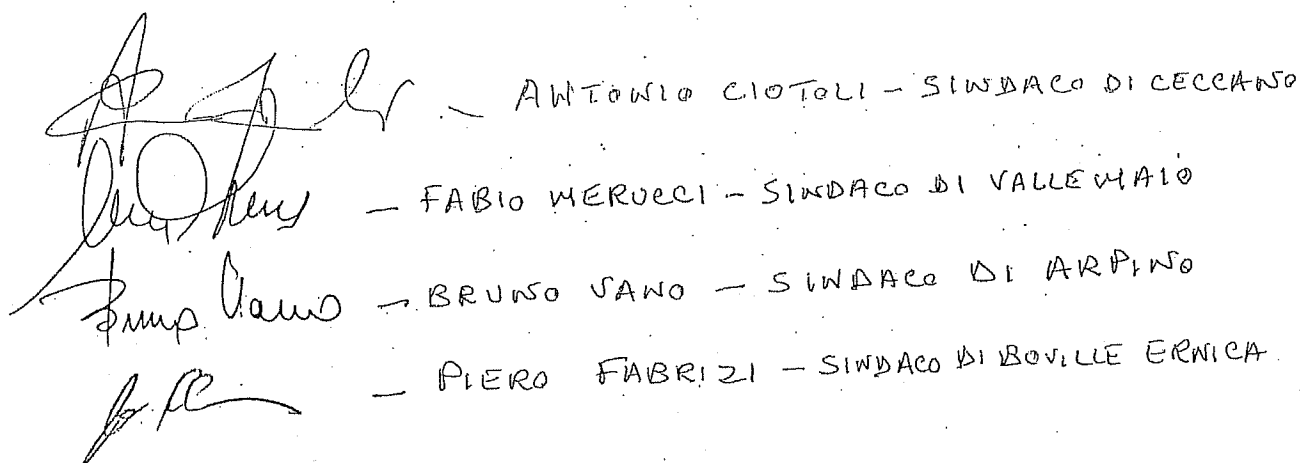 – ANTONIO CIOTOLI – SINDACO DI CECCANO
– FABIO MERUCCI – SINDACO DI VALLEMAIO
– BRUNO VANO – SINDACO DI ARPINO
– PIERO FABRIZI – SINDACO DI BOVILLE ERNICA